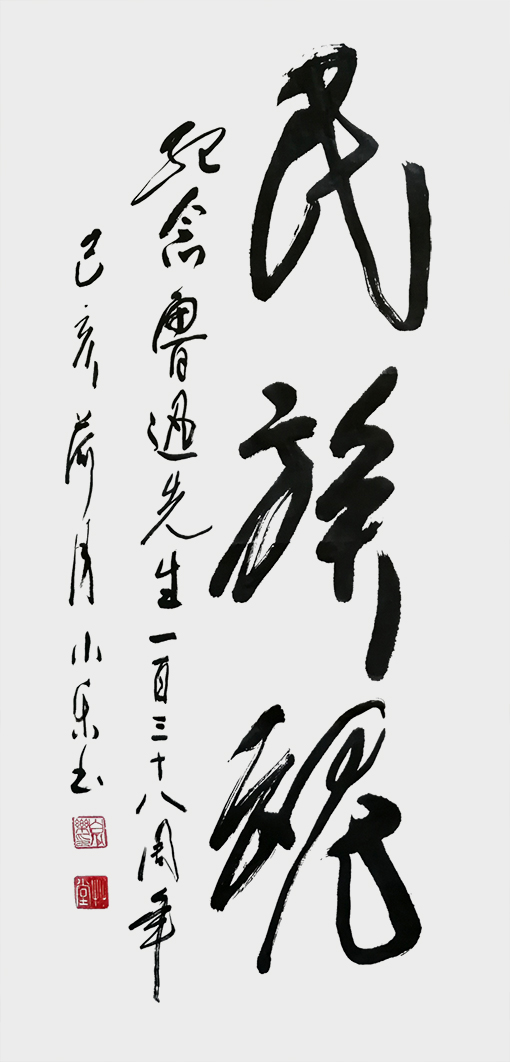 民族魂
纪念鲁迅先生一百三十八周年
己亥荷月小乐书